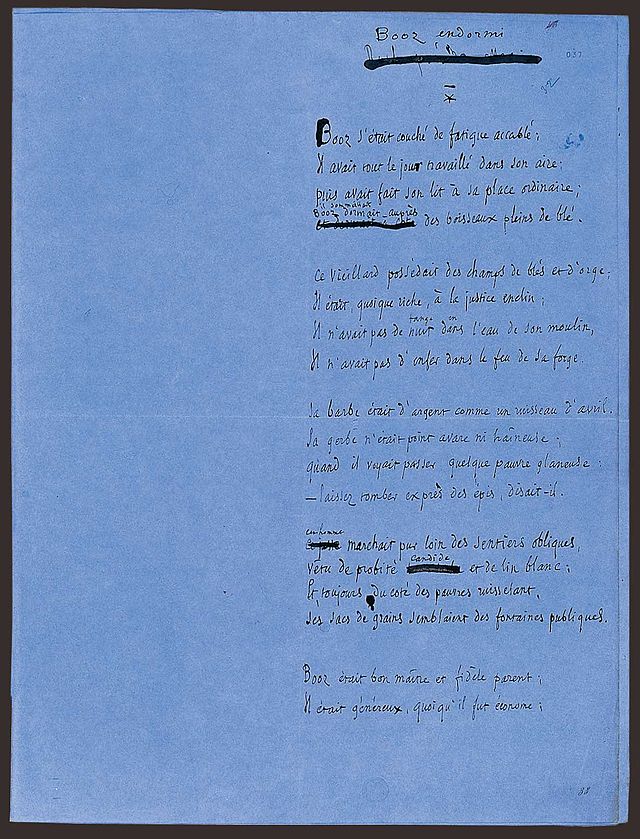 Booz endormi
037
32
Booz s'était couché de fatigue accablé ;
Il avait tout le jour travaillé dans son aire ;
Puis avait fait son lit à sa place ordinaire ;
Booz dormait auprès
des boisseaux pleins de blé.
Ce vieillard possédait des champs de blés et d'orge ;
Il était, quoique riche, à la justice enclin ;
fange en
Il n'avait pas de nuit dans l'eau de son moulin,
Il n'avait pas d'enfer dans le feu de sa forge.
Sa barbe était d'argent comme un ruisseau d'avril.
Sa gerbe n'était point avare ni haineuse ;
quand il voyait passer quelque pauvre glaneuse :
— laissez tomber exprès des épis, disait-il.
cet homme
marchait pur loin des sentiers obliques,
candide
Vêtu de probité et de lin blanc ;
Et toujours du coté des pauvres ruisselant,
Ses sacs de grains semblaient des fontaines publiques.
Booz était bon maître et fidèle parent ;
Il était généreux, quoiqu'il fut économe ;
38